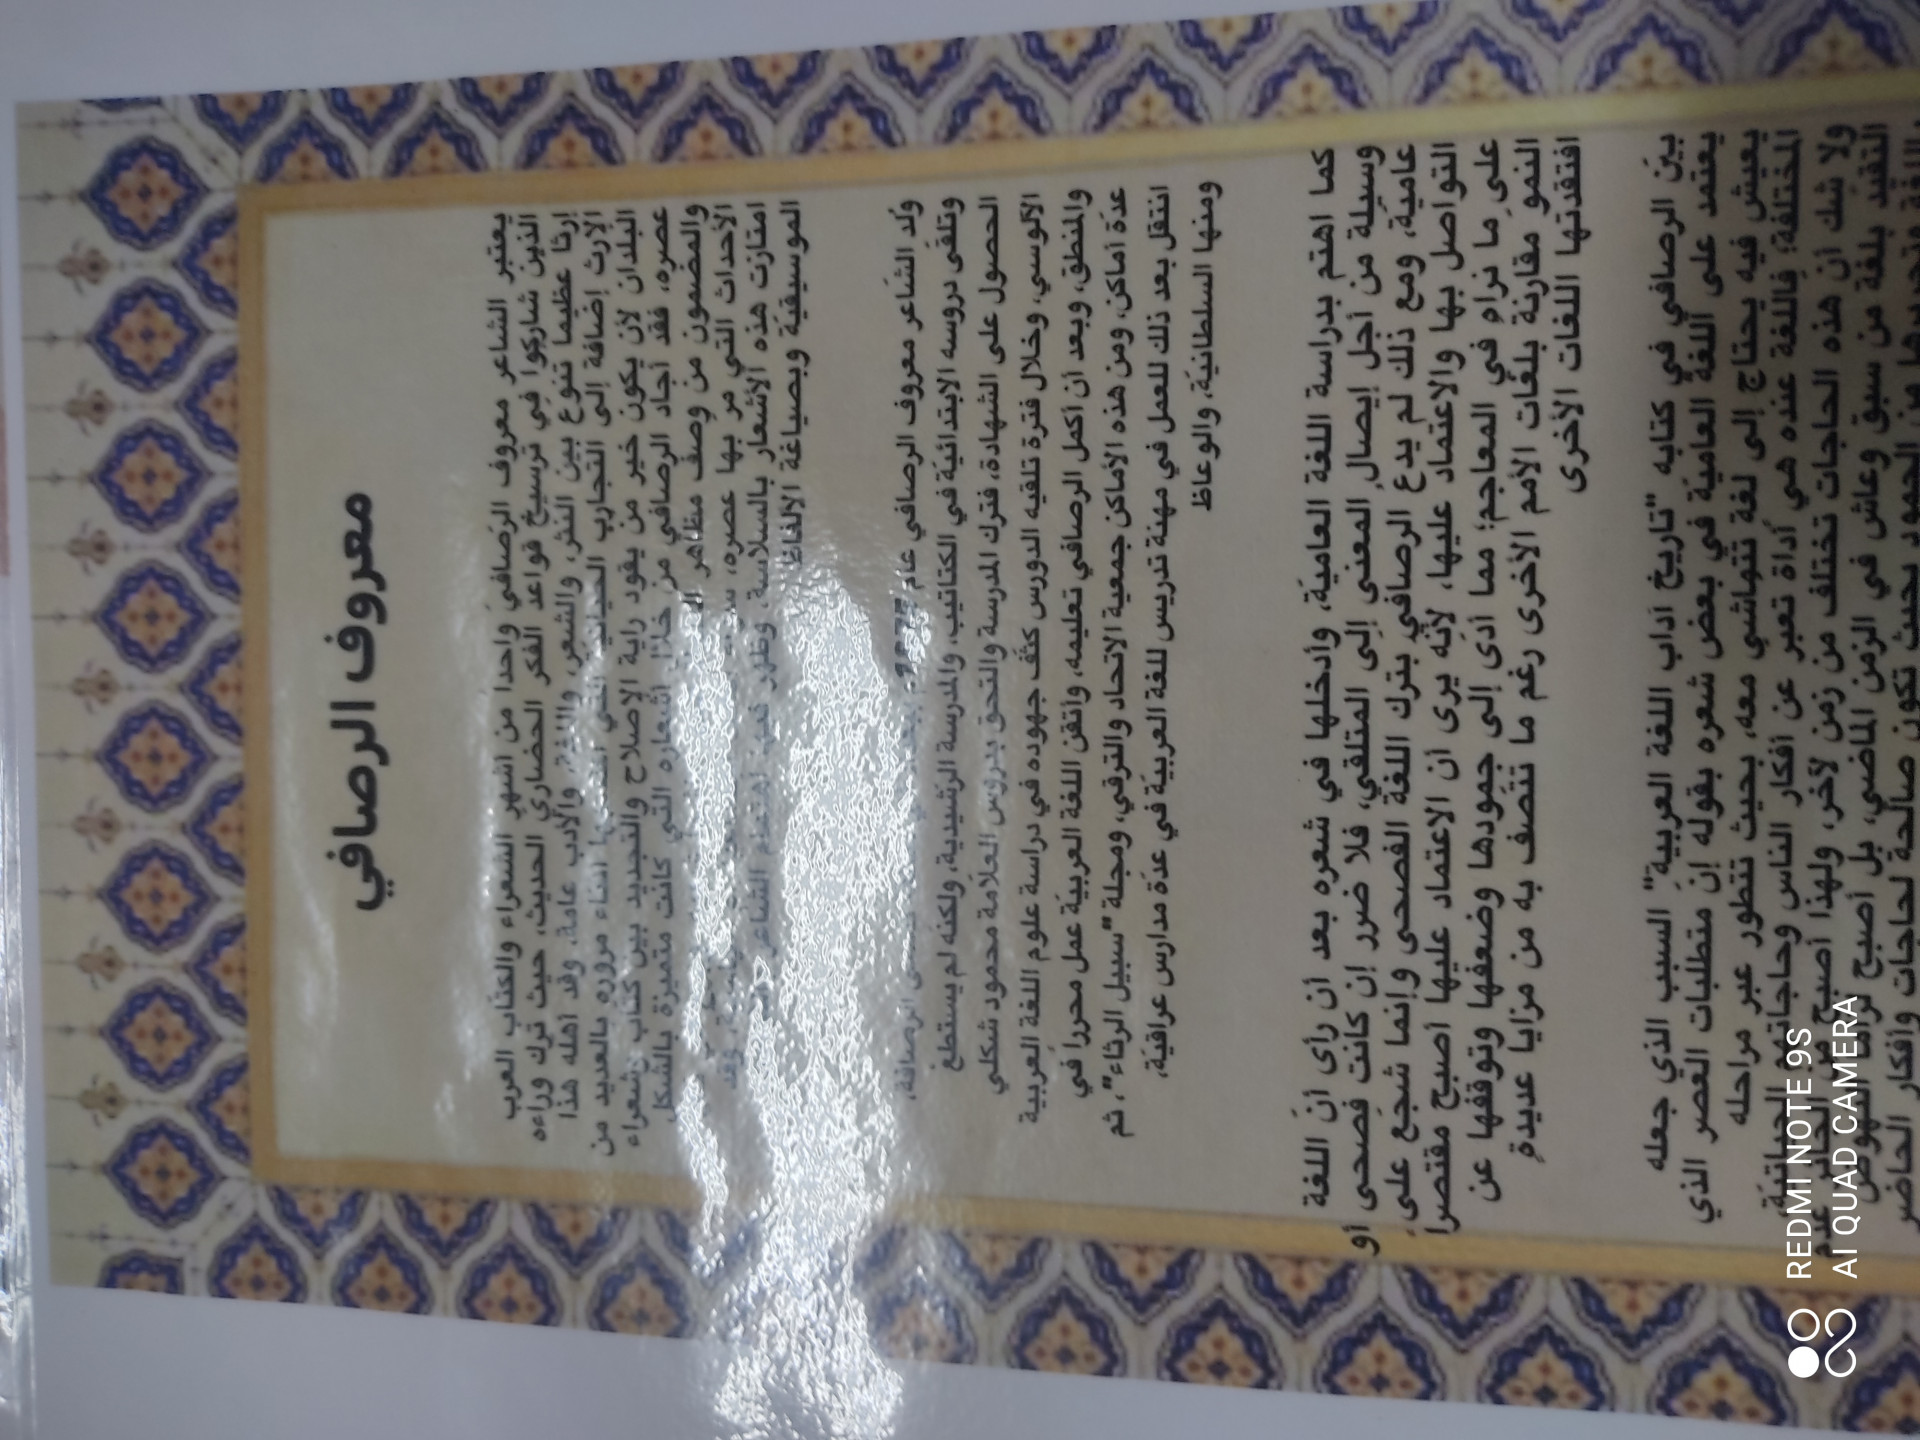 معروف الرصافي
يعتبر الشاعر معروف الرصافي واحدا من أشهر الشعراء والكتاب العرب
الذين شاركوا في ترسيخ قواعد الفكر الحضاري الحديث، حيث ترك وراءه
إرثا عظيما تنوع بين النثر، والشعر، واللغة، والأدب عامة، وقد أهله هذا
الإرث إضافة إلى التجارب الحياتية التي أثناء مروره بالعديد من
البلدان لأن يكون خير من يقود راية الإصلاح والتجديد بين كتاب وشعراء
عصره، فقد أجاد الرصافي من خلال أشعاره التي كانت متميزة بالشكل
والمضمون من وصف مظاهر
الأحداث التي مر بها عصره، وقد
امتازت هذه الأشعار بالسلاسة، الشاعر
الموسيقية وبصياغة الألفاظ
ولد الشاعر معروف الرصافي عام الرصافة،
وتلقى دروسه الابتدائية في الكتاتيب، والمدرسة الرشيدية، ولكنه لم يستطع
الحصول على الشهادة، فترك المدرسة والتحق بدروس العلامة محمود شكلي
الآلوسي، وخلال فترة تلقيه الدورس كثف جهوده في دراسة علوم اللغة العربية
والمنطق، وبعد أن أكمل الرصافي تعليمه، وأتقن اللغة العربية عمل محررا في
عدة أماكن، ومن هذه الأماكن جمعية الاتحاد والترقي، ومجلة "سبيل الرثاء"، ثم
انتقل بعد ذلك للعمل في مهنة تدريس للغة العربية في عدة مدارس عراقية،
ومنها السلطانية، والوعاظ
كما اهتم بدراسة اللغة العامية، وأدخلها في شعره بعد أن رأى أن اللغة
وسيلة من أجل إيصال المعنى إلى المتلقي، فلا ضرر إن كانت فصحى أو
عامية، ومع ذلك لم يدع الرصافي بترك اللغة الفصحى وإنما شجع على
التواصل بها والاعتماد عليها، لأنه يرى أن الاعتماد عليها أصبح مقتصرا
على ما نراه في المعاجم؛ مما أدى إلى جمودها وضعفها وتوقفها عن
النمو مقارنة بلغات الأمم الأخرى رغم ما تتصف به من مزايا عديدة
افتقدتها اللغات الأخرى
بين الرصافي في كتابه "تاريخ آداب اللغة العربية" السبب الذي جعله
يعتمد على اللغة العامية في بعض شعره بقوله إن متطلبات العصر الذي
يعيش فيه يحتاج إلى لغة تتماشى معه، بحيث تتطور عبر مراحله
المختلفة؛ فاللغة عنده هي أداة تعبر عن أفكار الناس وحاجاتهم الحياتية،
ولا شك أن هذه الحاجات تختلف من زمن لآخر، ولهذا أصبح
التقيد بلغة من سبق وعاش في الزمن الماضي، بل أصبح لزاما النهوض
باللغة وتحريرها من الجمود بحيث تكون صالحة لحاجات وأفكار الحاضر
REDMI NOTE 9S
AI QUAD CAMERA